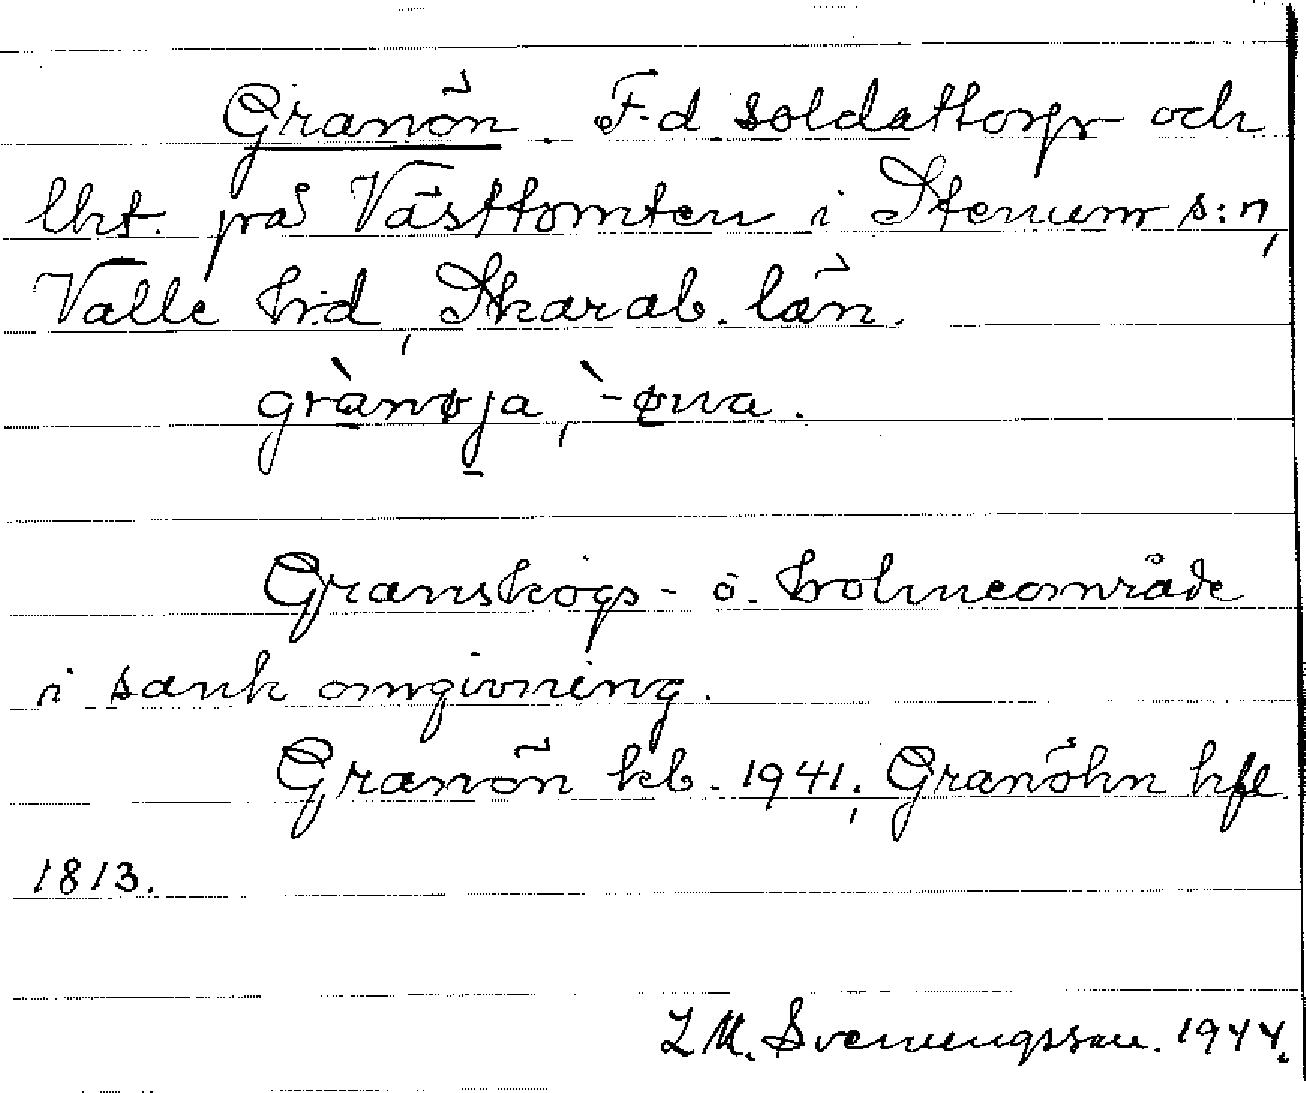 Granön. F.d. soldattorp och
lht. på Västtomten i Stenum s:n,
Valle hd, Skarab. län.
grànøja, `-øna.
Granskogs- o. holmeområde
i sank omgivning.
Granön kb. 1941; Granöhn hfl
1813.
L M. Svenungsson. 1944.